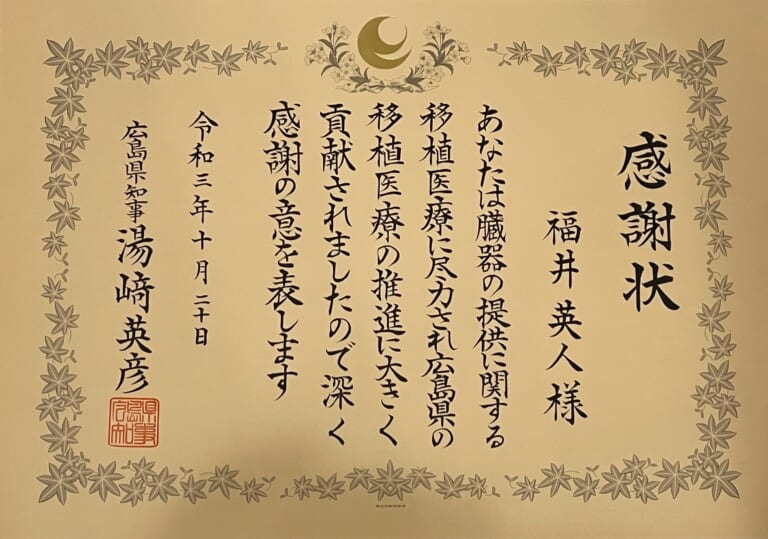 感謝状
福井英人様
あなたは臓器の提供に関する
移植医療に尽力され広島県の
移植医療の推進に大きく
貢献されましたので深く
感謝の意を表します
令和三年十月二十日
広島県知事 湯﨑英彦